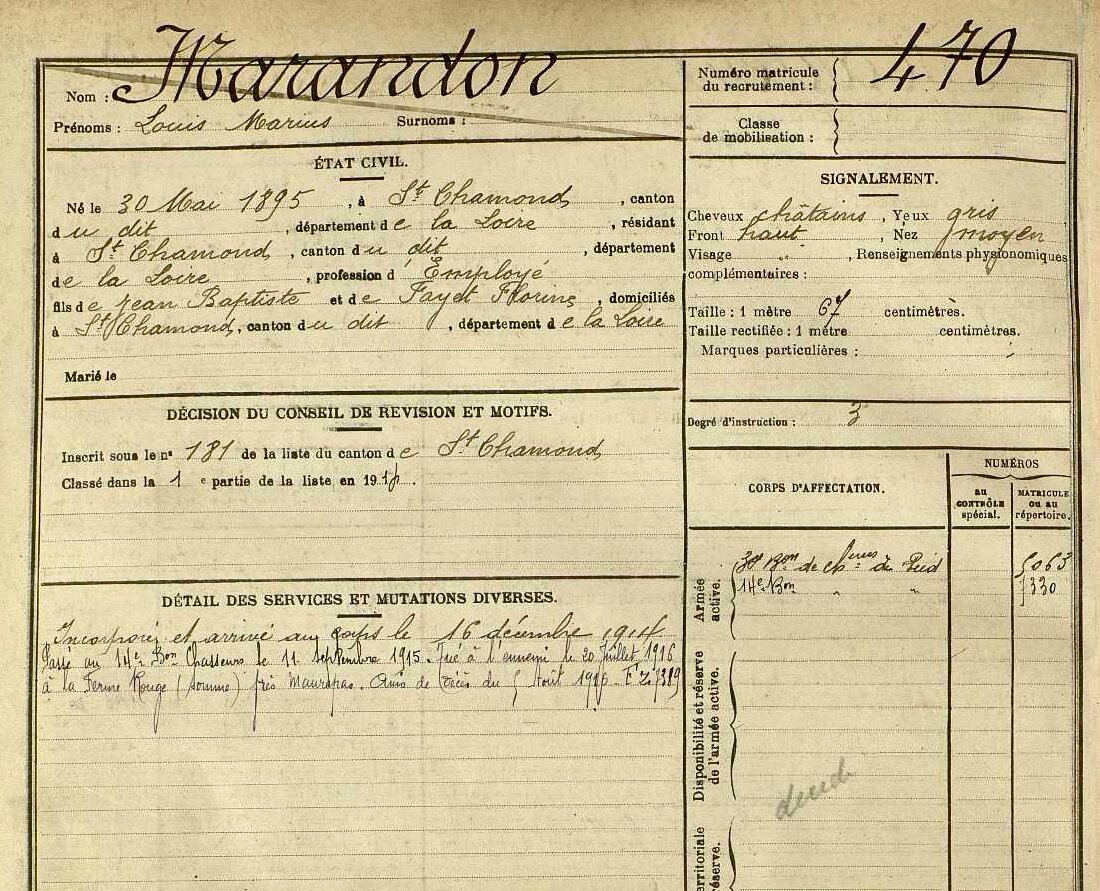 Nom : Marandon
Prénoms : Louis Marius Surnoms :
ÉTAT CIVIL.
Né le 30 Mai 1895, à St Chamond, canton
du dit, département de la Loire, résidant
à St Chamond, canton du dit, département
de la Loire, profession d'Employé
fils de Jean Baptiste et de Fayet Florine, domiciliés
à St Chamond, canton du dit, département de la Loire
Marié le
DÉCISION DU CONSEIL DE REVISION ET MOTIFS.
Inscrit sous le n° 181 de la liste du canton de St Chamond
Classé dans la 1 e partie de la liste en 191
DÉTAIL DES SERVICES ET MUTATIONS DIVERSES.
Incorporé et arrivé au corps le 16 décembre 1914
Passé au 14e Bon Chasseurs le 11 septembre 1915. Tué à l'ennemi le 20 Juillet 1916
à la Ferme Rouge (Somme) près Maurepas. Avis de décès du 5 Août 1916.
Numéro matricule du recrutement : 470
Classe de mobilisation :
SIGNALEMENT.
Cheveux châtains, Yeux gris
Front haut, Nez moyen
Visage „, Renseignements physionomiques
complémentaires :
Taille : 1 mètre 67 centimètres.
Taille rectifiée : 1 mètre centimètres.
Marques particulières :
Degré d'instruction : 3
CORPS D'AFFECTATION.
NUMÉROS
au CONTRÔLE spécial.
MATRICULE ou au répertoire.
Armée active.
30e Bon de cheurs à Pied 5063
14e Bon „ „ 7330
Disponibilité et réserve de l'armée active.